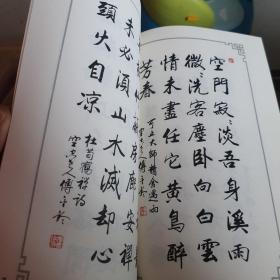 空門寂〻淡吾身溪雨
微〻洗客塵卧向白雲
情未盡任它黃鳥醉
芳春
可止大師精舍遇雨
房廊安禪
未必須山水滅却心
頭火自凉
杜荀鶴禪詩